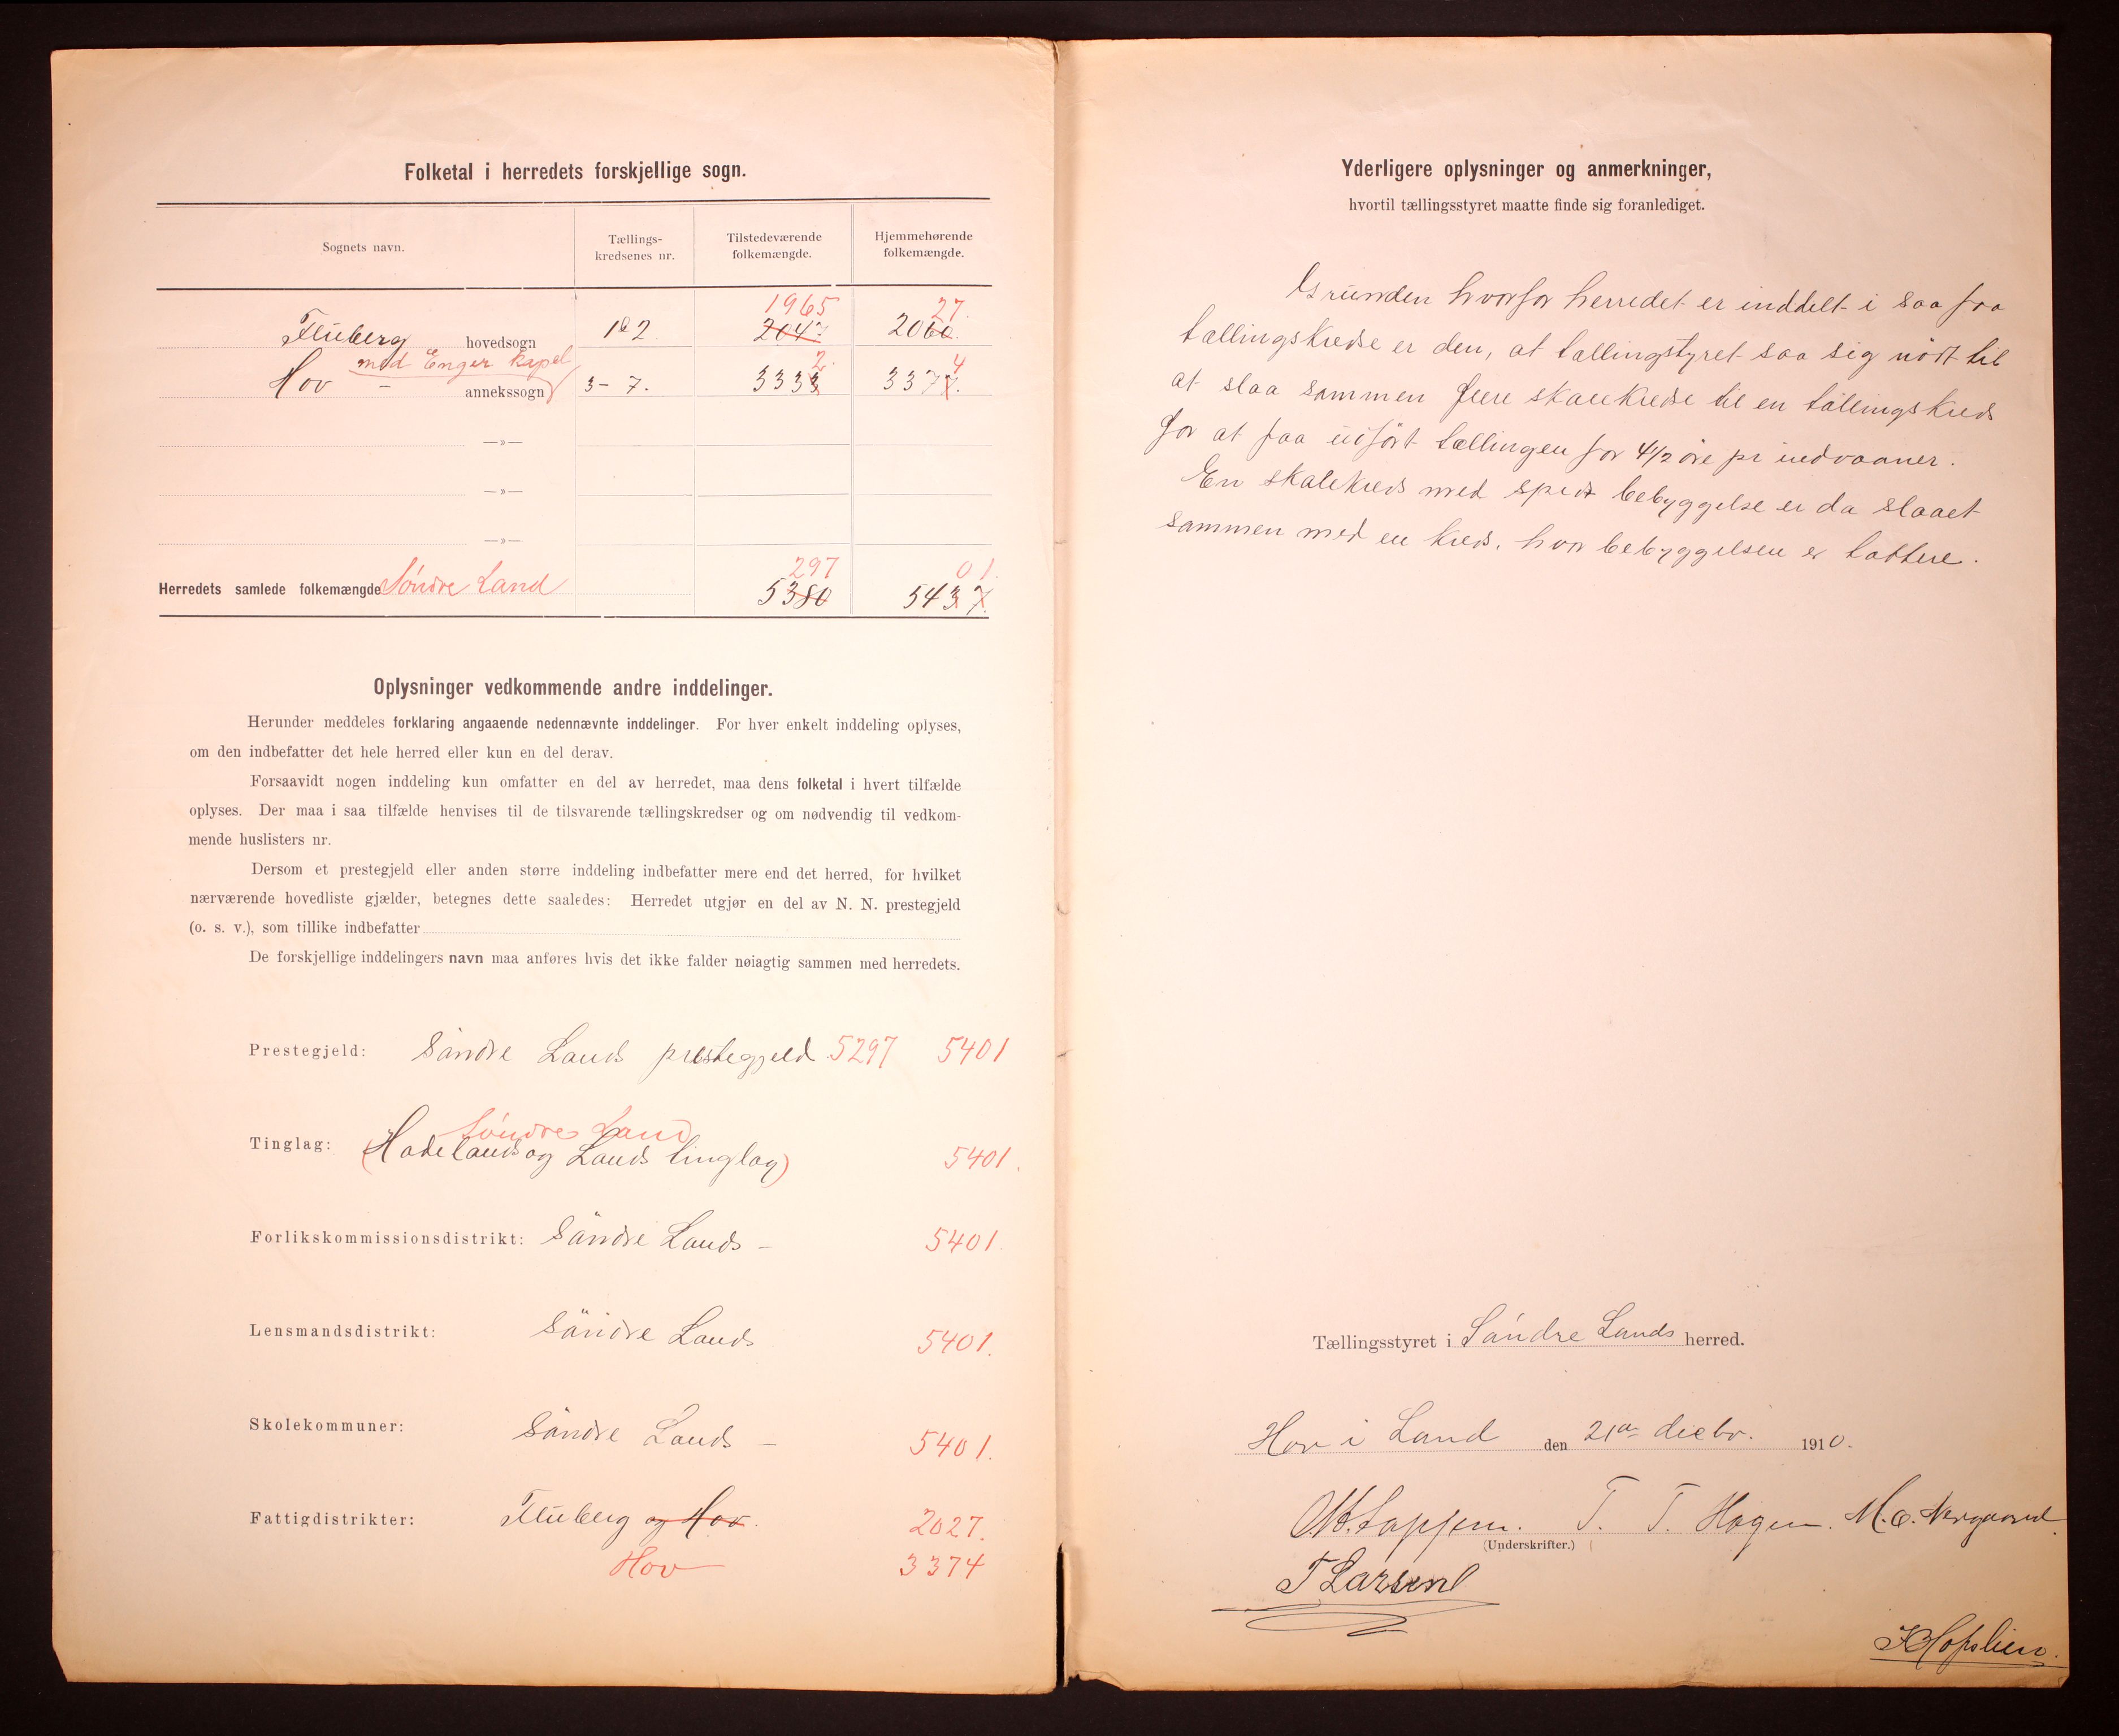 Folketal i herredets forskjellige sogn.
Sognets navn.
Tællings-
kredsenes nr.
Tilstedeværende
folkemængde.
Hjemmehørende
folkemængde.
1965 27.
Fluberg hovedsogn 1&2. 2047 2060.
med Enger kapel 2. 4
Hov - annekssogn 3-7. 3333 3377.
—»—
—»—
—»—
297 01.
Herredets samlede folkemængde Søndre Land 5380 5437.
Oplysninger vedkommende andre inddelinger.
Herunder meddeles forklaring angaaende nedennævnte inddelinger. For hver enkelt inddeling oplyses,
om den indbefatter det hele herred eller kun en del derav.
Forsaavidt nogen inddeling kun omfatter en del av herredet, maa dens folketal i hvert tilfælde
oplyses. Der maa i saa tilfælde henvises til de tilsvarende tællingskredser og om nødvendig til vedkom-
mende huslisters nr.
Dersom et prestegjeld eller anden større inddeling indbefatter mere end det herred, for hvilket
nærværende hovedliste gjælder, betegnes dette saaledes: Herredet utgjør en del av N. N. prestegjeld
(o. s. v.), som tillike indbefatter
De forskjellige inddelingers navn maa anføres hvis det ikke falder nøiagtig sammen med herredets.
Prestegjeld: Söndre Lands prestegjeld 5297 5401
Søndre Land
Tinglag: (Hadelands og Lands tinglag) 5401.
Forlikskommissionsdistrikt: Söndre Lands – 5401.
Lensmandsdistrikt: Söndre Lands 5401.
Skolekommuner: Söndre Lands – 5401.
Fattigdistrikter: Fluberg og Hov. 2027.
Hov 3374
Yderligere oplysninger og anmerkninger,
hvortil tællingsstyret maatte finde sig foranlediget.
Grunden hvorfor herredet er inddelt i saa faa
tællingskredse er den, at tællingstyret saa sig nödt til
at slaa sammen flere skolekredse til en tællingskreds
for at faa udfört tællingen for 4½ öre pr indvaaner.
En skolekreds med spredt bebyggelse er da slaaet
sammen med en kreds, hvor bebyggelsen er tættere.
Tællingsstyret i Söndre Lands herred.
Hov i Land den 21de decbr. 1910.
T. T. Hagen. M. O. Nergaard.
(Underskrifter.)
T Larsen